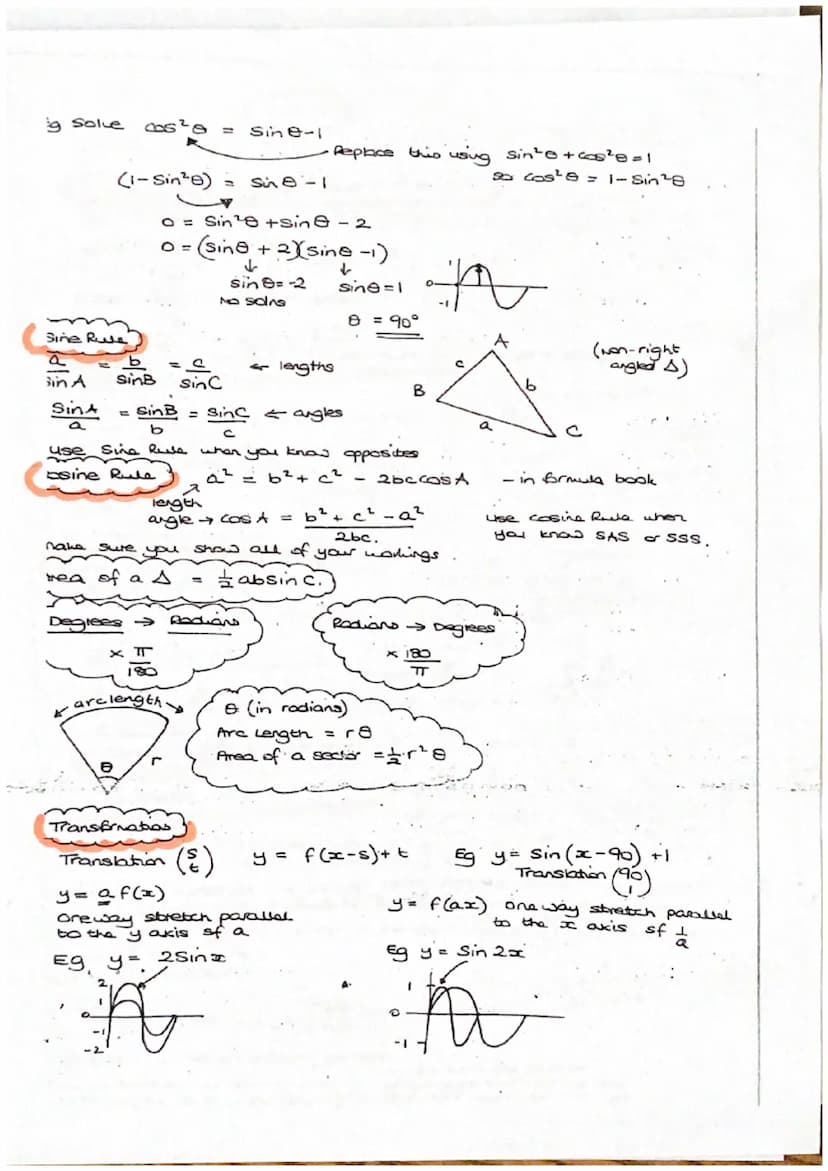 g Solve cos²θ = sinθ-1
Replace this using sin²θ + cos²θ = 1
so cos²θ = 1-sin²θ
(1-sin²θ) = sinθ - 1
0 = sin²θ + sinθ - 2
0 = (sinθ + 2)(sinθ - 1)
sinθ = -2 sinθ = 1
No solns
1
0
-1
θ = 90°
Sine Rule
a/sinA = b/sinB = c/sinC ← lengths
(Non-right angled Δ)
A
B
C
c
b
a
SinA/a = sinB/b = sinC/c ← angles
Use Sine Rule when you know opposites
osine Rule a² = b² + c² - 2bccosA - in formula book
length
angle → cosA = (b² + c² - a²)/2bc.
Use Cosine Rule when
you know SAS or SSS.
make sure you show all of your workings.
rea of a Δ = ½absinC.
Degrees → Radians
× π/180
Radians → Degrees
× 180/π
arc length
θ
r
θ (in radians)
Arc Length = rθ
Area of a sector = ½r²θ
Translation (s t) y = f(x-s)+t Eg y = sin(x-90)+1
Translation (90 1)
y = a f(x)
one way stretch parallel
to the y axis sf a
y = f(ax) one way stretch parallel
to the x axis sf 1/a
Eg y = 2Sinx
2
1
0
-1
-2
Eg y = Sin2x
1
0
-1